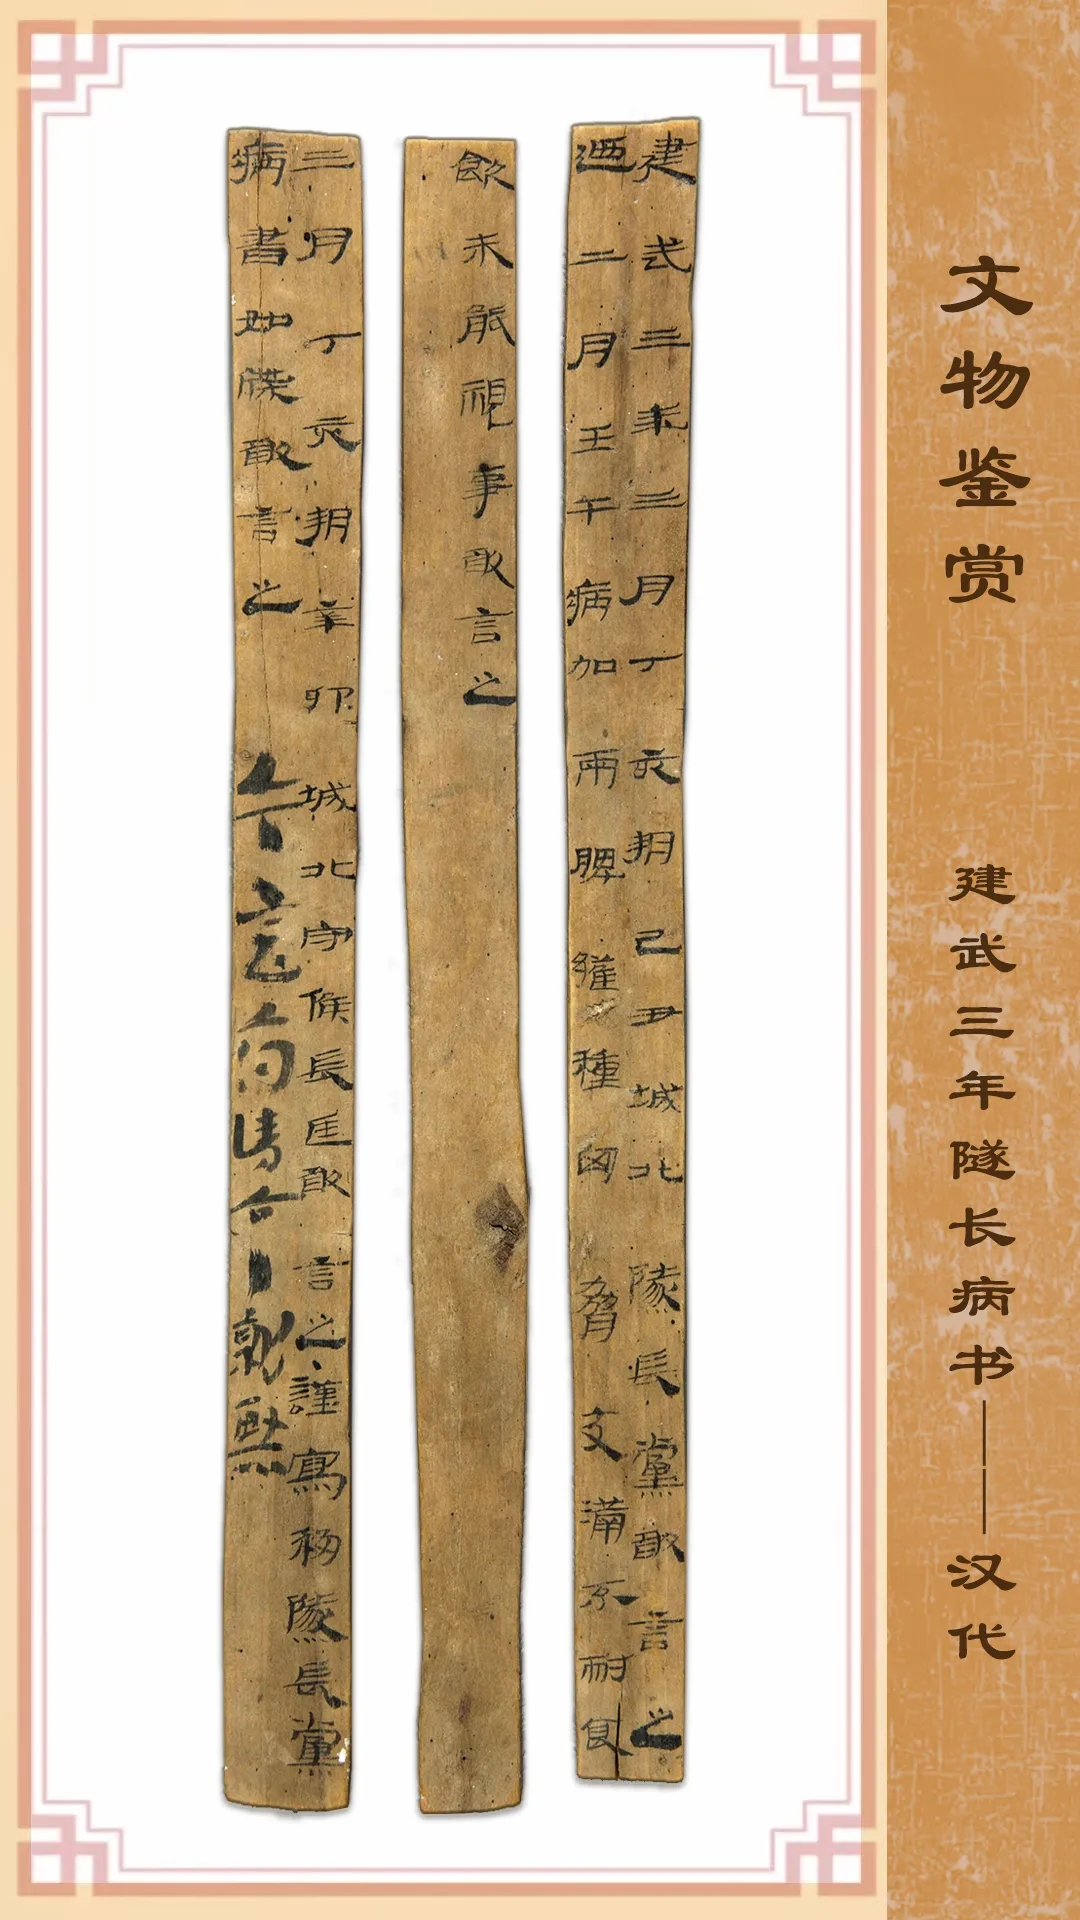 文物鉴赏
建武三年隧长病书——汉代
建武三年三月丁亥朔己丑城北隧長黨敢言之
迺二月壬午病加兩脾雍種匈脅支滿不耐食
飲未能視事敢言之
三月丁亥朔辛卯城北守候長匡敢言之謹寫移隧長黨
病書如牒敢言之 今言府請令就醫